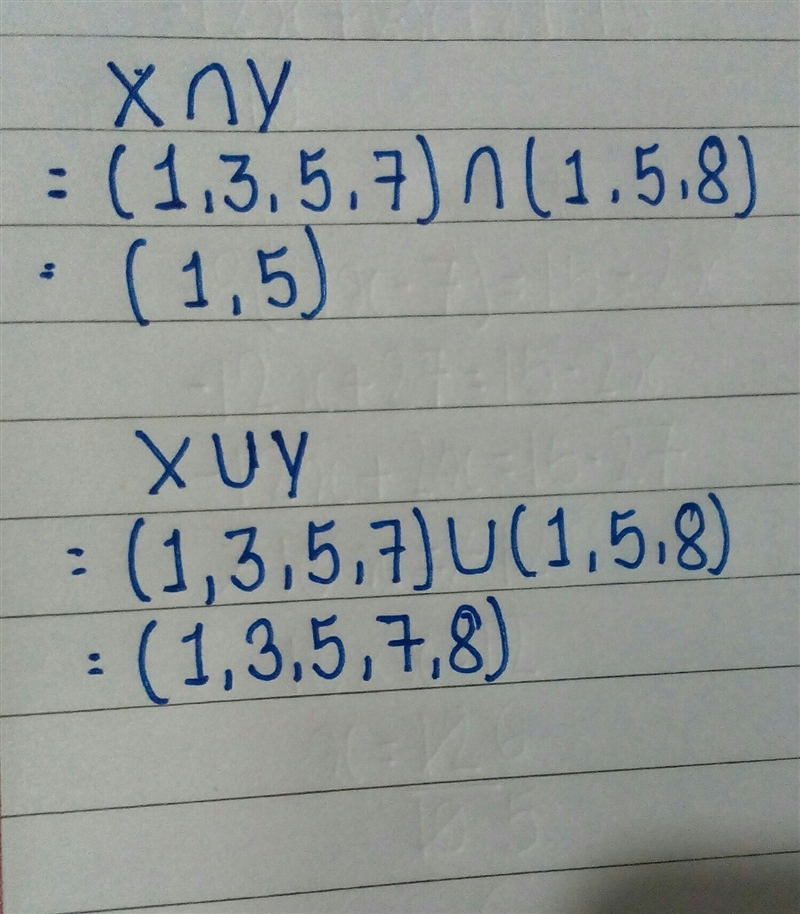 X∩Y
= (1,3,5,7)∩(1,5,8)
= (1,5)
X∪Y
= (1,3,5,7)∪(1,5,8)
= (1,3,5,7,8)